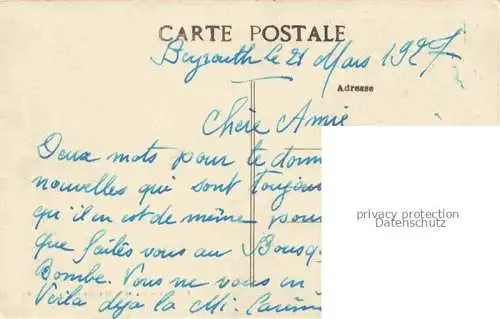 CARTE POSTALE
Beyrouth le 21 Mars 1927
Adresse
Chère Amie
Deux mots pour te donn
nouvelles qui sont toujou
qu'il en est de même pou
que faites vous au Bousq
Bombe. Vous ne vous en
Voila déja la Mi. Carêm
privacy protection
Datenschutz